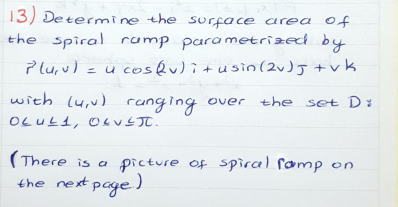 13) Determine the surface area of
the spiral ramp parametrized by
r⃗(u,v) = u cos(2v) i + u sin(2v) j + v k
with (u,v) ranging over the set D:
0≤u≤1, 0≤v≤π.
(There is a picture of spiral ramp on
the next page)